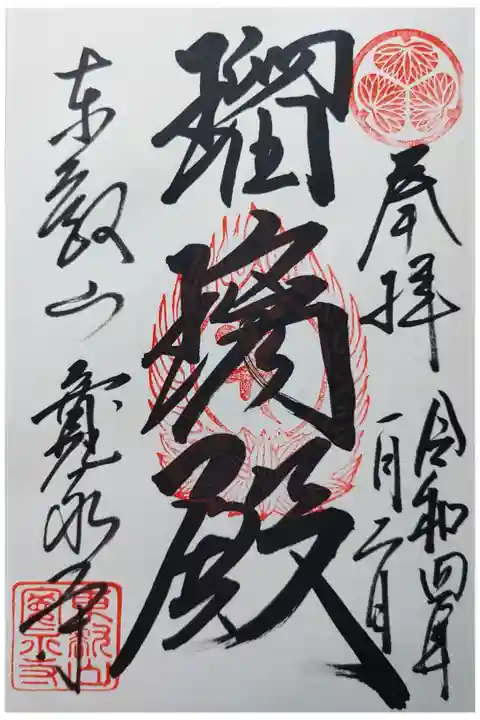 奉拝
令和四年
一月二日
瑠璃殿
東叡山 寛永寺
東叡山
寛永寺